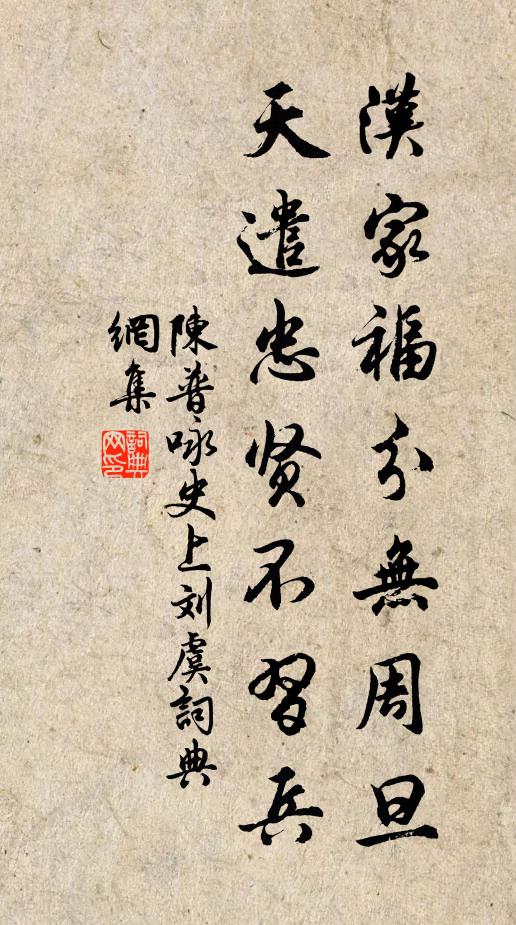 漢家福分無周旦
天遣忠贤不習兵
陳普咏史上刘虞詞典
網集
詞典网印